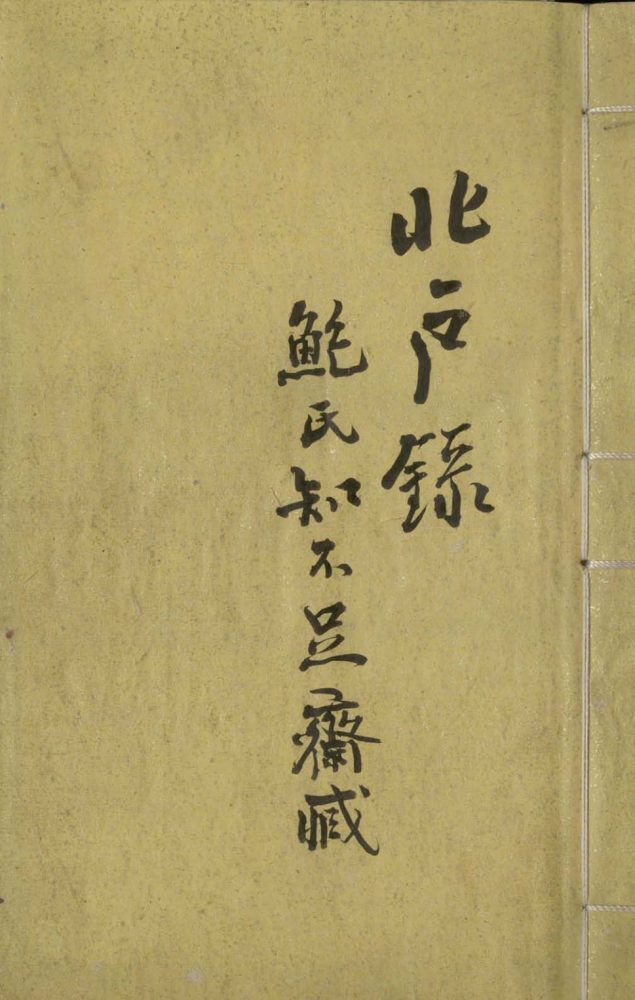 北户錄
鮑氏知不足齋臧